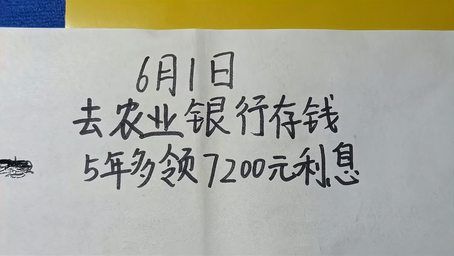 6月1日
去农业银行存钱
5年多领7200元利息